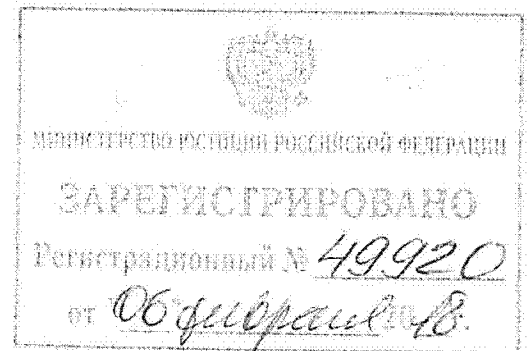 МИНИСТЕРСТВО ЮСТИЦИИ РОССИЙСКОЙ ФЕДЕРАЦИИ
ЗАРЕГИСТРИРОВАНО
Регистрационный № 49920
от "06" февраля 2018.